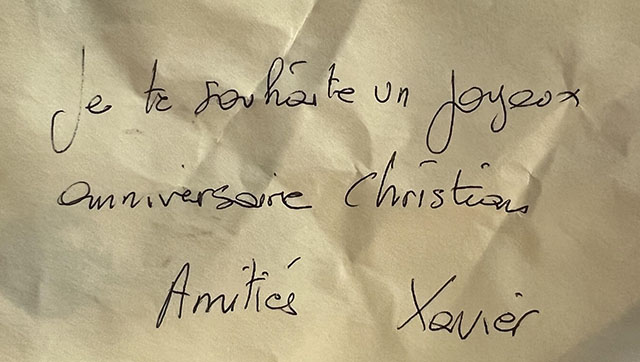 Je te souhaite un joyeux
anniversaire Christian
Amitiés Xavier